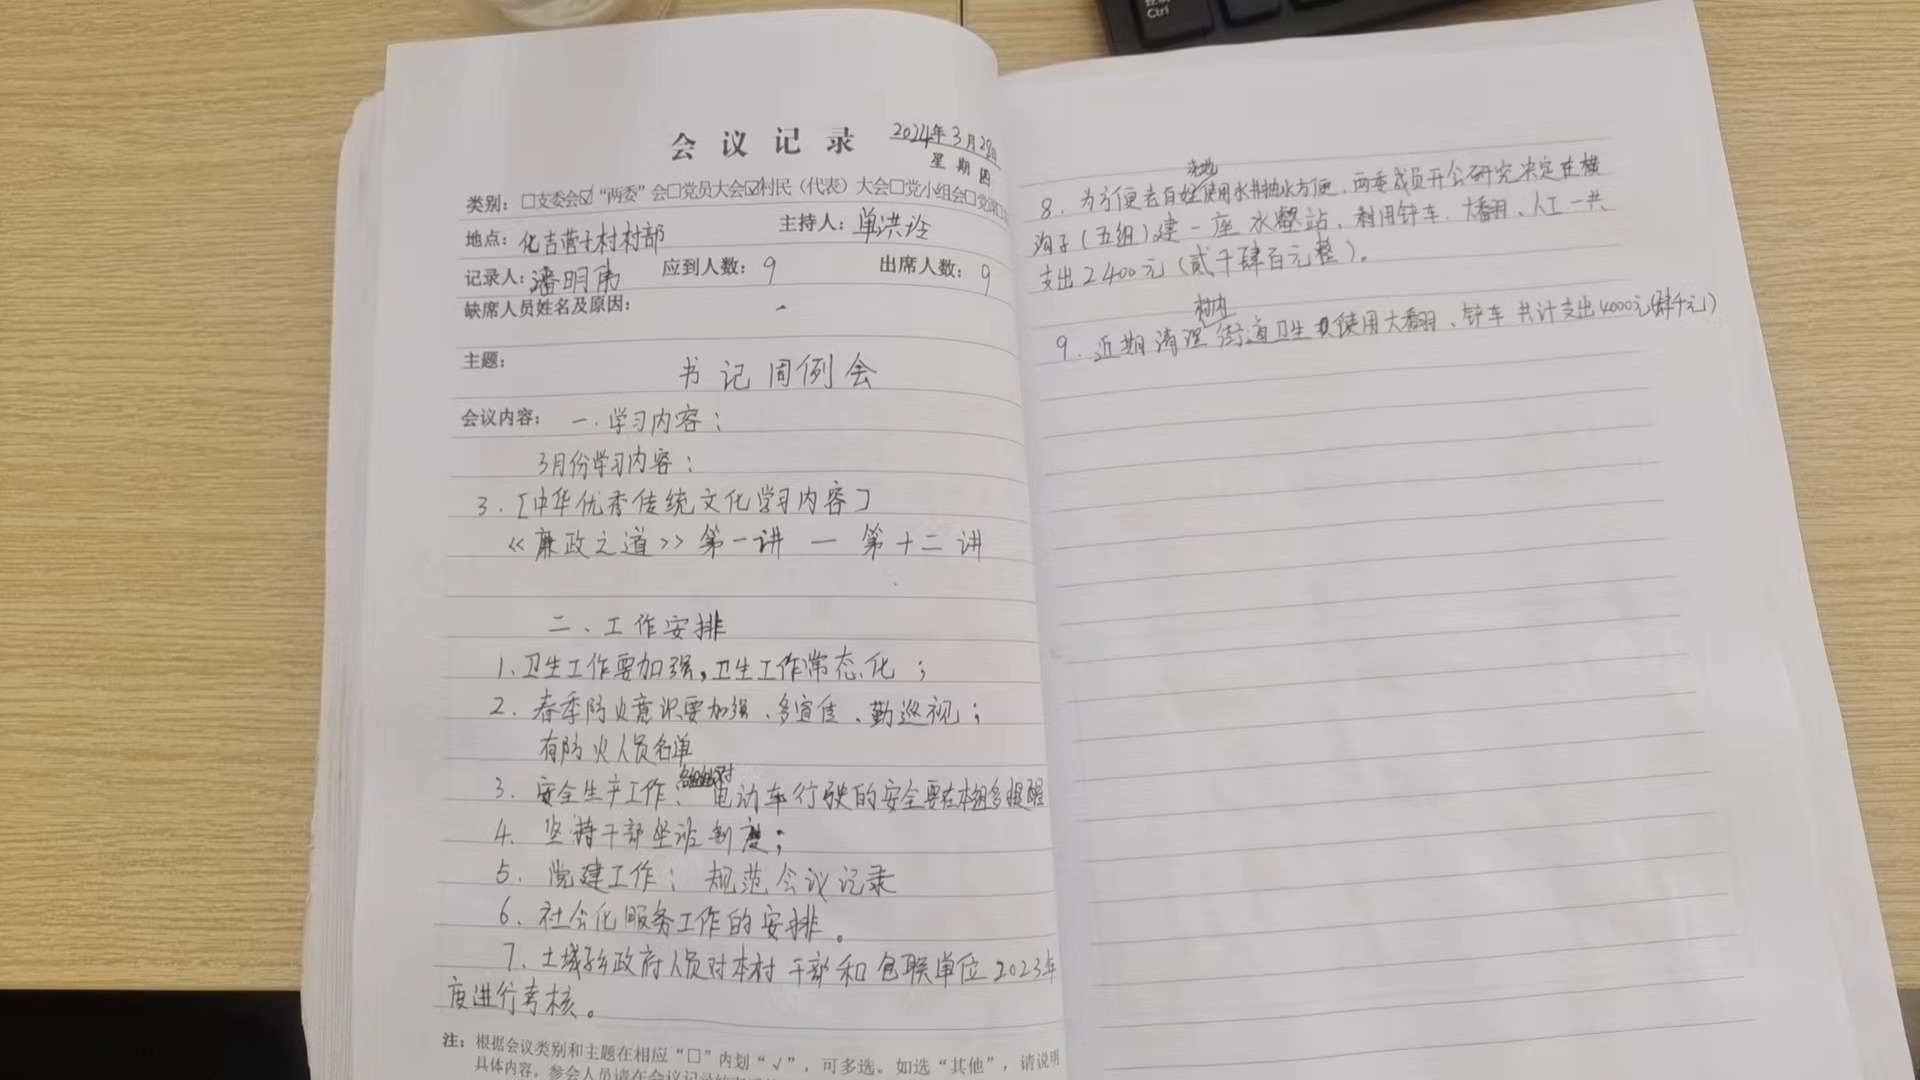 Ctrl
会议记录
2024年3月28日
星期四
类别：□支委会☑“两委”会□党员大会☑村民（代表）大会□党小组会□党课□
地点：化吉营子村村部 主持人：单洪
记录人：潘明 应到人数：9 出席人数：9
缺席人员姓名及原因： -
主题：
书记周例会
会议内容：一.学习内容：
3月份学习内容：
3.[中华优秀传统文化学习内容]
《廉政之道》第一讲 — 第十二讲
二、工作安排
1.卫生工作要加强，卫生工作常态化；
2.春季防火意识要加强、多宣传、勤巡视；
有防火人员名单
3.安全生产工作、电动车行驶的安全要在本组多提醒
4.坚持干部坐班制度；
5.党建工作：规范会议记录
6.社会化服务工作的安排。
7、土城子乡政府人员对本村干部和包联单位2023年
度进行考核。
注：根据会议类别和主题在相应“□”内划“√”，可多选。如选“其他”，请说明
具体内容。参会人员请在会议记录
浇地
8.为方便老百姓使用水井抽水方便，两委成员开会研究决定在横
沟子（五组）建一座水整站，利用铲车、大翻、人工一共
支出2400元（贰千肆百元整）。
村内
9.近期清理街道卫生使用大翻、铲车共计支出4000元(肆千元)